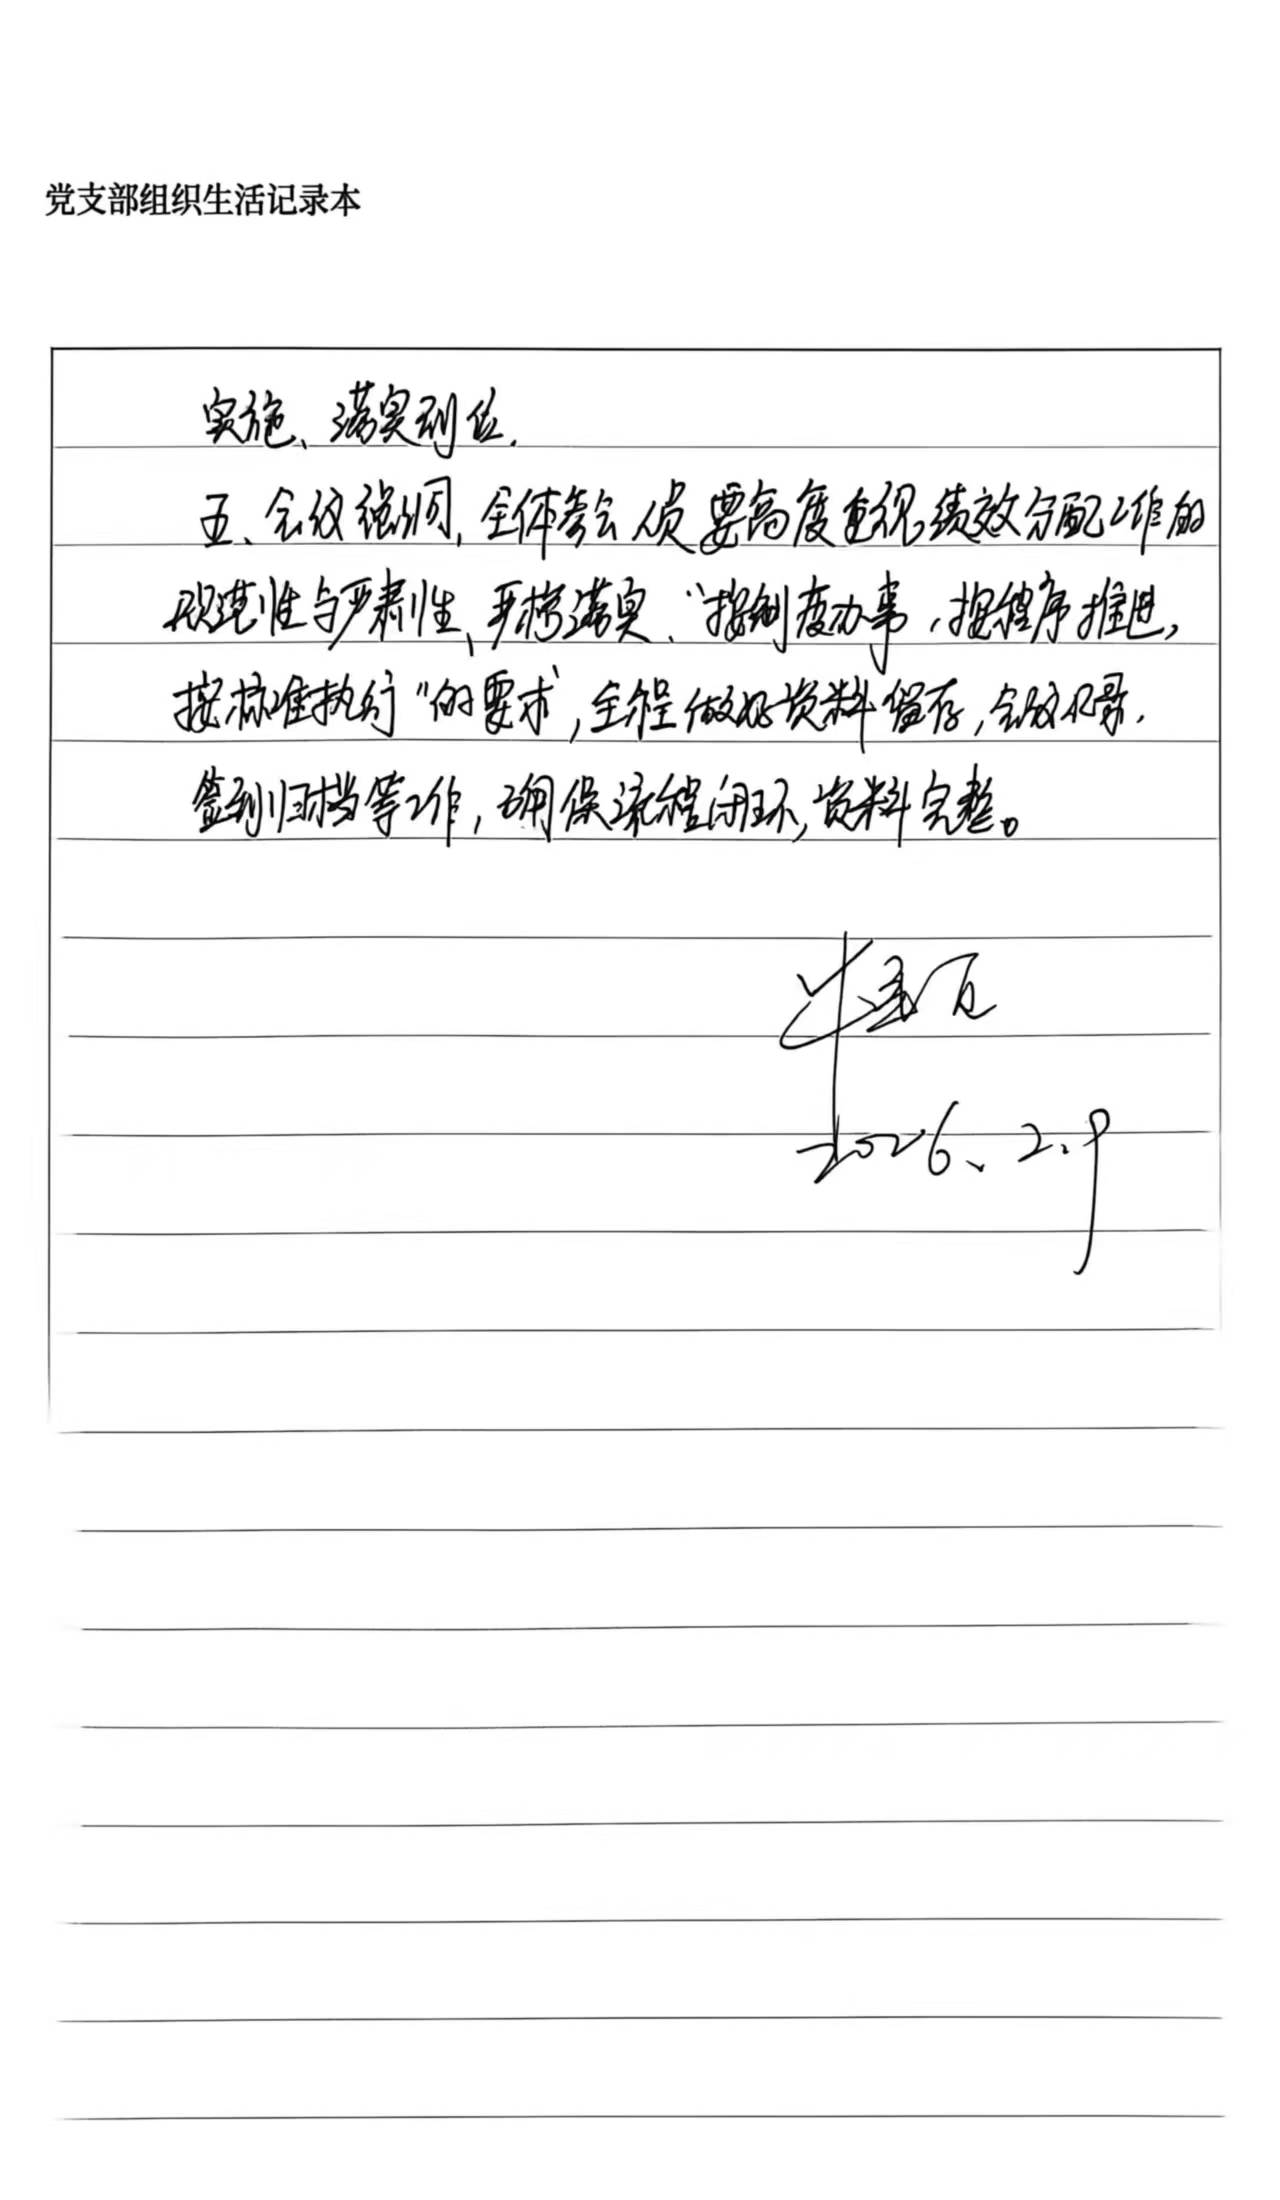 党支部组织生活记录本
实施、落实到位.
五、会议强调,全体参会人员要高度重视绩效分配工作的
规范性与严肃性,严格落实、“按制度办事,按程序推进,
按标准执行”的要求,全程做好资料留存,会议记录,
签到归档等工作,确保流程闭环,资料完整。
2026、2.9